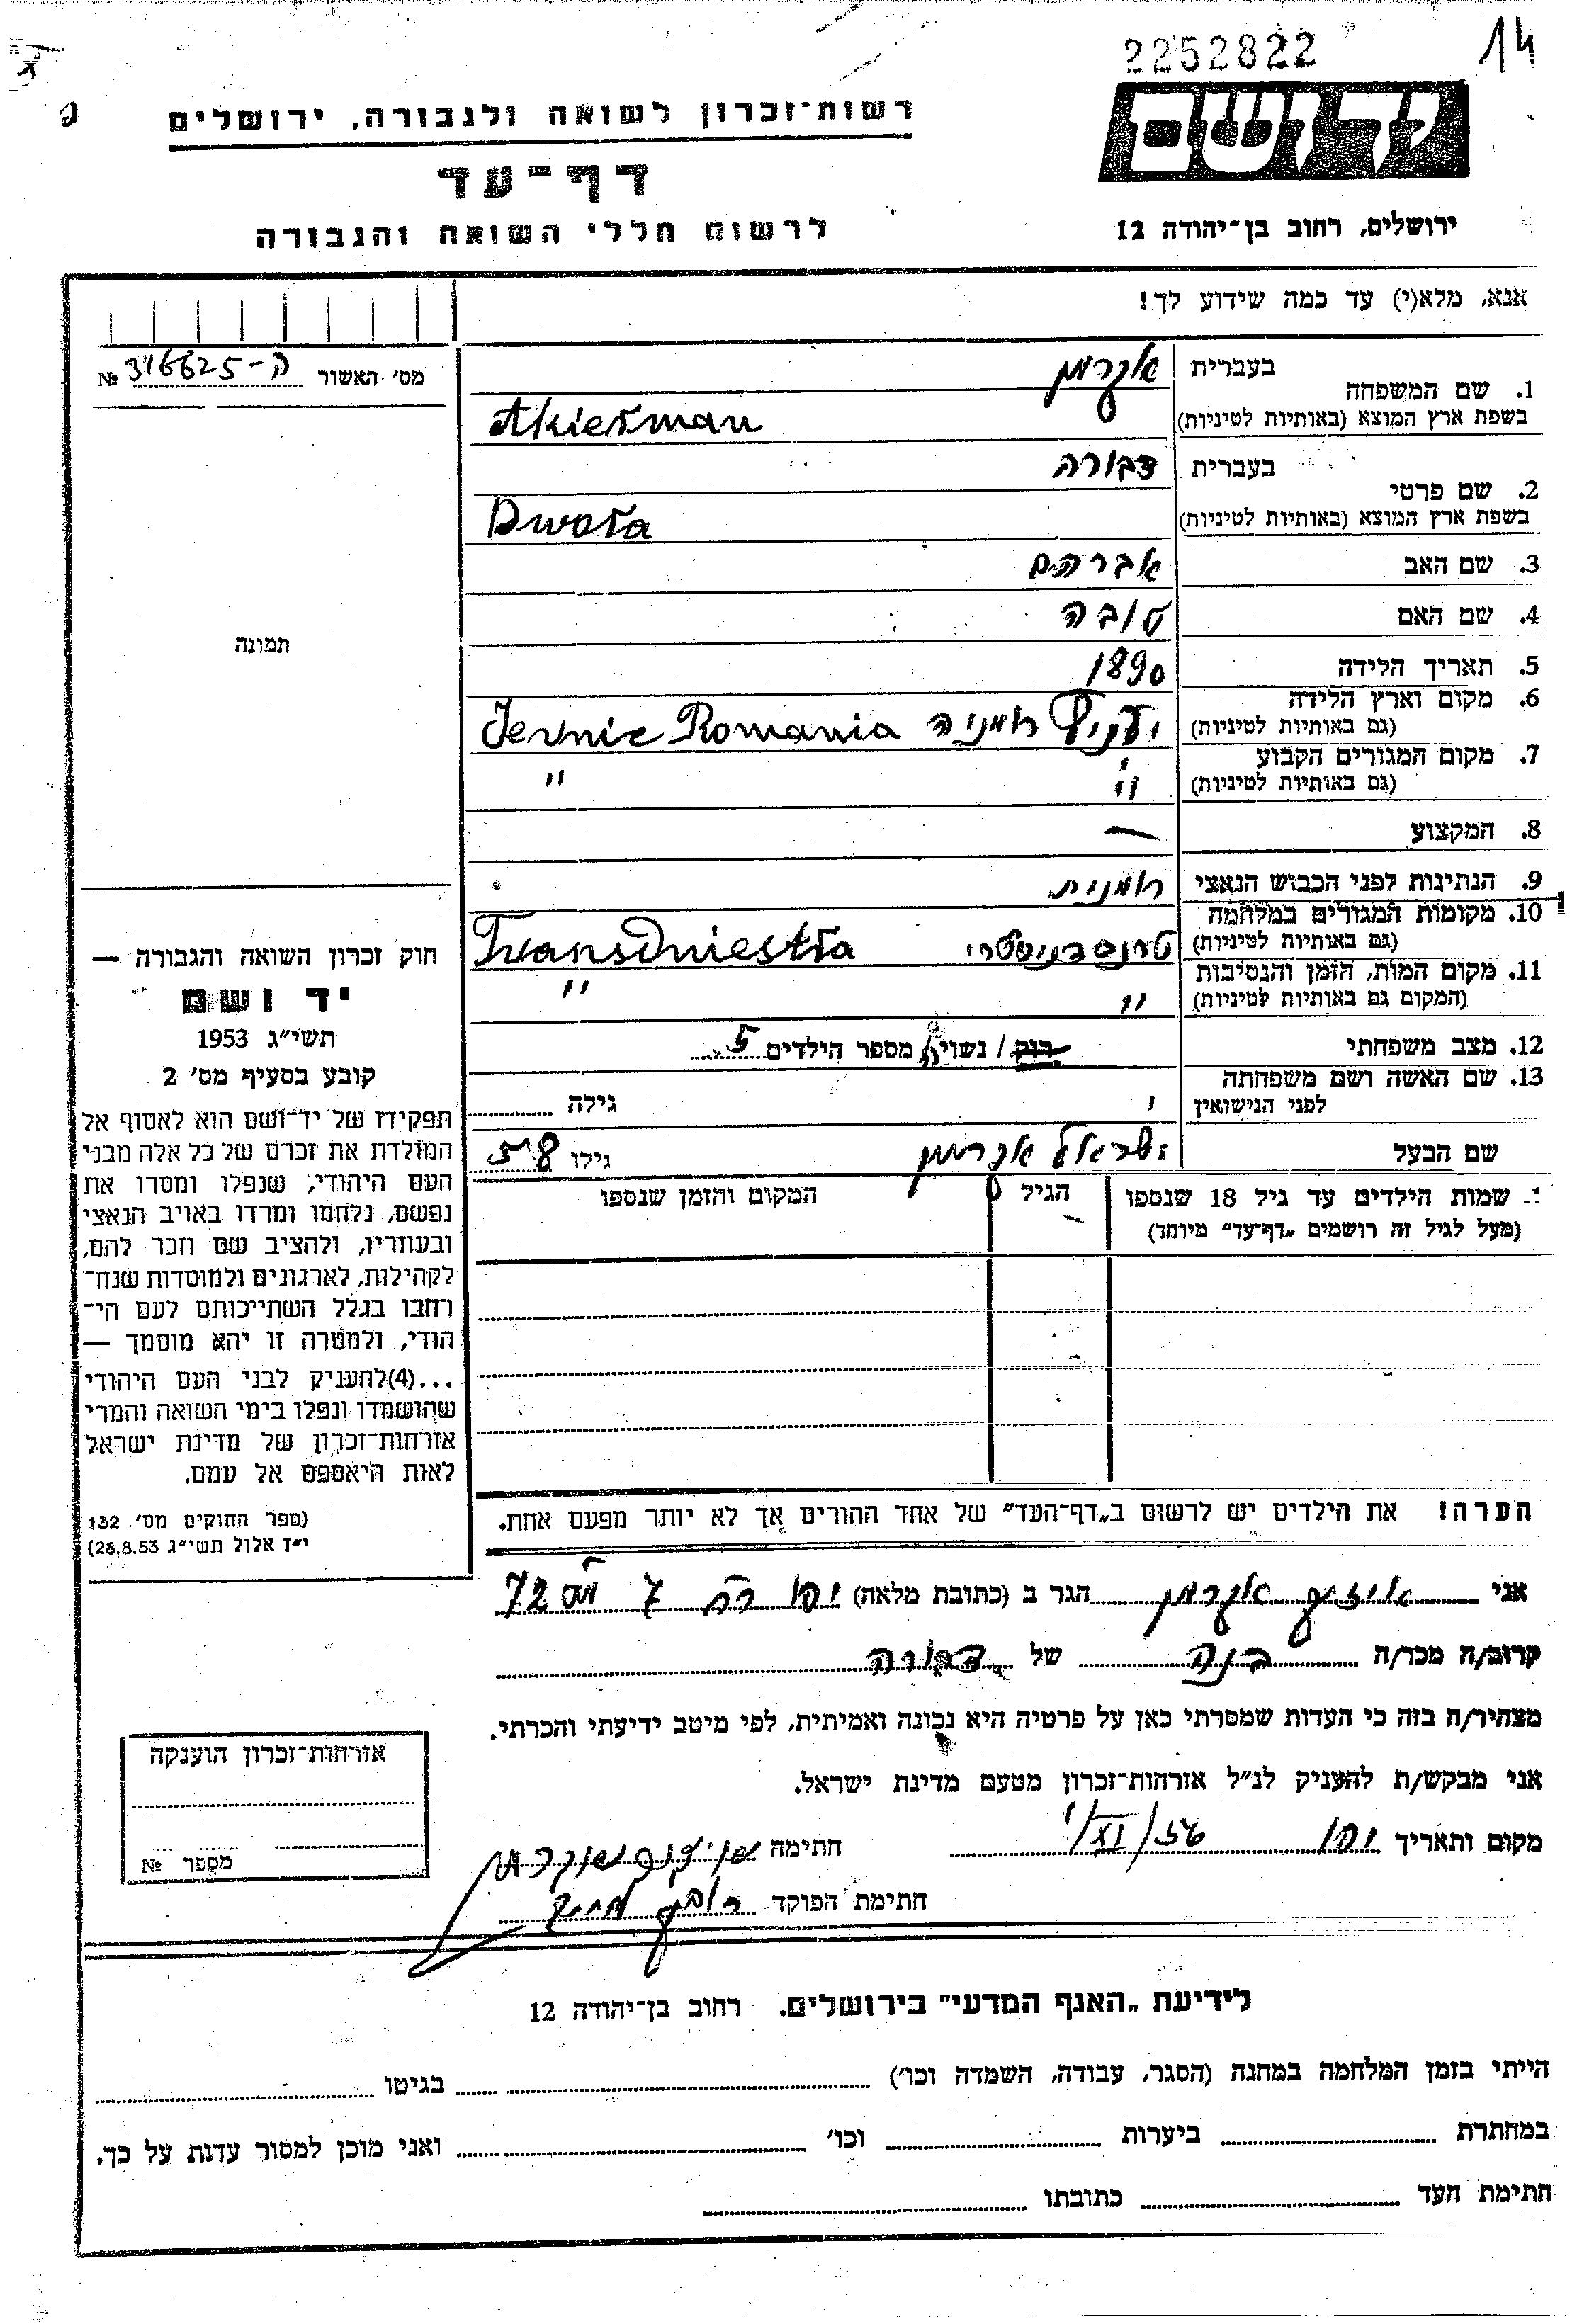 2252822
14
רשות־זכרון לשואה ולגבורה, ירושלים
דף־עד
לרשום חללי השואה והגבורה
יד ושם
ירושלים, רחוב בן־יהודה 12
אנא, מלא(י) עד כמה שידוע לך!
מס׳ האשור № 316625-ה
1. שם המשפחה
בעברית אקרמן
בשפת ארץ המוצא (באותיות לטיניות) Akierman
2. שם פרטי
בעברית דבורה
בשפת ארץ המוצא (באותיות לטיניות) Dwora
3. שם האב אברהם
4. שם האם טובה
5. תאריך הלידה 1890
6. מקום וארץ הלידה
(גם באותיות לטיניות) רומניה Romania
7. מקום המגורים הקבוע
(גם באותיות לטיניות) " "
8. המקצוע —
9. הנתינות לפני הכבוש הנאצי רומנית
10. מקומות המגורים במלחמה
(גם באותיות לטיניות) טרנסדניסטרי Transdniestra
11. מקום המות, הזמן והנסיבות
(המקום גם באותיות לטיניות) " "
12. מצב משפחתי רוק / נשוי/ה מספר הילדים 5
13. שם האשה ושם משפחתה
לפני הנישואין גילה
שם הבעל ישראל אקרמן גילו 58
שמות הילדים עד גיל 18 שנספו
(מעל לגיל זה רושמים „דף־עד" מיוחד)
הגיל
המקום והזמן שנספו
תמונה
חוק זכרון השואה והגבורה —
יד ושם
תשי״ג 1953
קובע בסעיף מס׳ 2
תפקידו של יד־ושם הוא לאסוף אל
המולדת את זכרם של כל אלה מבני
העם היהודי, שנפלו ומסרו את
נפשם, נלחמו ומרדו באויב הנאצי
ובעוזריו, ולהציב שם וזכר להם,
לקהילות, לארגונים ולמוסדות שנח־
רחבו בגלל השתייכותם לעם הי־
הודי, ולמטרה זו יהא מוסמך —
...(4)להעניק לבני העם היהודי
שהושמדו ונפלו בימי השואה והמרי
אזרחות־זכרון של מדינת ישראל
לאות היאספם אל עמם.
(ספר החוקים מס׳ 132
י״ז אלול תשי״ג 28.8.53)
הערה! את הילדים יש לרשום ב„דף־העד" של אחד ההורים אך לא יותר מפעם אחת.
אני אקרמן הגר ב (כתובת מלאה) יפו 7 מס 72
קרוב/ה מכר/ה בנה של דבורה
מצהיר/ה בזה כי העדות שמסרתי כאן על פרטיה היא נכונה ואמיתית, לפי מיטב ידיעתי והכרתי.
אני מבקש/ת להעניק לנ״ל אזרחות־זכרון מטעם מדינת ישראל.
מקום ותאריך יפו 1/XI/56 חתימה
חתימת הפוקד ראובן
אזרחות־זכרון הוענקה
מספר №
לידיעת „האגף המדעי" בירושלים. רחוב בן־יהודה 12
הייתי בזמן המלחמה במחנה (הסגר, עבודה, השמדה וכו׳) בגיטו
במחתרת ביערות וכו׳ ואני מוכן למסור עדות על כך.
חתימת העד כתובתו